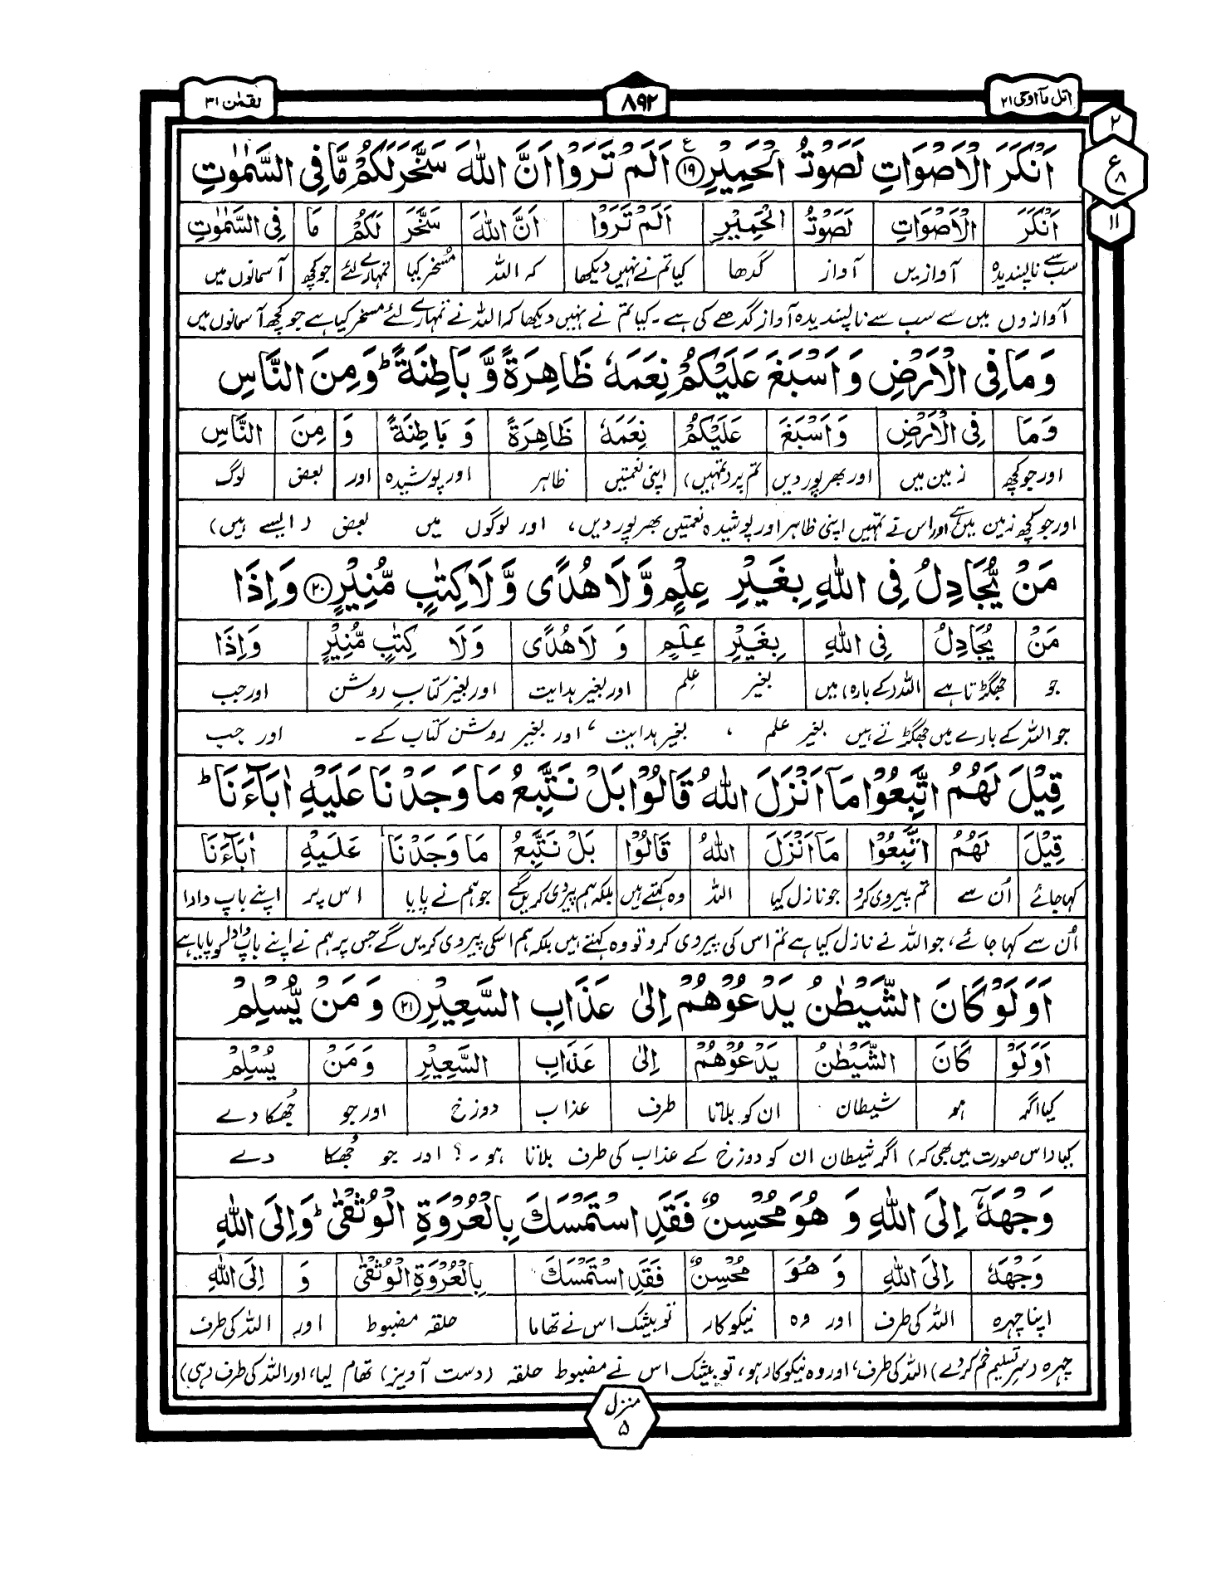 اتل مآ اوحی ۲۱
۸۹۲
لقمٰن ۳۱
۲
ع
۸
۱۱
اَنْكَرَ الْاَصْوَاتِ لَصَوْتُ الْحَمِيْرِ ۱۹ اَلَمْ تَرَوْا اَنَّ اللّٰهَ سَخَّرَ لَكُمْ مَّا فِي السَّمٰوٰتِ
اَنْكَرَ الْاَصْوَاتِ لَصَوْتُ الْحَمِيْرِ اَلَمْ تَرَوْا اَنَّ اللّٰهَ سَخَّرَ لَكُمْ مَا فِي السَّمٰوٰتِ
سب سے ناپسندیدہ آوازیں آواز گدھا کیا تم نے نہیں دیکھا کہ اللہ مسخر کیا تمہارے لئے جو کچھ آسمانوں میں
آوازوں میں سے سب سے ناپسندیدہ آواز گدھے کی ہے۔ کیا تم نے نہیں دیکھا کہ اللہ نے تمہارے لئے مسخر کیا ہے جو کچھ آسمانوں میں
وَمَا فِي الْاَرْضِ وَاَسْبَغَ عَلَيْكُمْ نِعَمَهٗ ظَاهِرَةً وَّبَاطِنَةً ؕ وَمِنَ النَّاسِ
وَمَا فِي الْاَرْضِ وَاَسْبَغَ عَلَيْكُمْ نِعَمَهٗ ظَاهِرَةً وَبَاطِنَةً وَ مِنَ النَّاسِ
اور جو کچھ زمین میں اور بھرپور دیں تم پر (تمہیں) اپنی نعمتیں ظاہر اور پوشیدہ اور بعض لوگ
اور جو کچھ زمین میں ہے اور اس نے تمہیں اپنی ظاہر اور پوشیدہ نعمتیں بھرپور دیں، اور لوگوں میں بعض (ایسے ہیں)
مَنْ يُّجَادِلُ فِي اللّٰهِ بِغَيْرِ عِلْمٍ وَّلَا هُدًى وَّلَا كِتٰبٍ مُّنِيْرٍ ۲۰ وَاِذَا
مَنْ يُجَادِلُ فِي اللّٰهِ بِغَيْرِ عِلْمٍ وَلَا هُدًى وَلَا كِتٰبٍ مُّنِيْرٍ وَاِذَا
جو جھگڑتا ہے اللہ (کے بارہ) میں بغیر علم اور بغیر ہدایت اور بغیر کتابِ روشن اور جب
جو اللہ کے بارے میں جھگڑتے ہیں بغیر علم ، بغیر ہدایت ، اور بغیر روشن کتاب کے۔ اور جب
قِيْلَ لَهُمُ اتَّبِعُوْا مَآ اَنْزَلَ اللّٰهُ قَالُوْا بَلْ نَتَّبِعُ مَا وَجَدْنَا عَلَيْهِ اٰبَآءَنَا ؕ
قِيْلَ لَهُمُ اتَّبِعُوْا مَآ اَنْزَلَ اللّٰهُ قَالُوْا بَلْ نَتَّبِعُ مَا وَجَدْنَا عَلَيْهِ اٰبَآءَنَا
کہا جائے اُن سے تم پیروی کرو جو نازل کیا اللہ وہ کہتے ہیں بلکہ ہم پیروی کریں گے جو ہم نے پایا اس پر اپنے باپ دادا
اُن سے کہا جائے، جو اللہ نے نازل کیا ہے تم اس کی پیروی کرو تو وہ کہتے ہیں بلکہ ہم اسکی پیروی کریں گے جس پر ہم نے اپنے باپ دادا کو پایا ہے
اَوَلَوْ كَانَ الشَّيْطٰنُ يَدْعُوْهُمْ اِلٰى عَذَابِ السَّعِيْرِ ۲۱ وَمَنْ يُّسْلِمْ
اَوَلَوْ كَانَ الشَّيْطٰنُ يَدْعُوْهُمْ اِلٰى عَذَابِ السَّعِيْرِ وَمَنْ يُسْلِمْ
کیا اگر ہو شیطان ان کو بلاتا طرف عذاب دوزخ اور جو جُھکا دے
کیا (اس صورت میں بھی کہ) اگر شیطان ان کو دوزخ کے عذاب کی طرف بلاتا ہو۔؟ اور جو جُھکا دے
وَجْهَهٗٓ اِلَى اللّٰهِ وَهُوَ مُحْسِنٌ فَقَدِ اسْتَمْسَكَ بِالْعُرْوَةِ الْوُثْقٰى ؕ وَاِلَى اللّٰهِ
وَجْهَهٗ اِلَى اللّٰهِ وَهُوَ مُحْسِنٌ فَقَدِ اسْتَمْسَكَ بِالْعُرْوَةِ الْوُثْقٰى وَ اِلَى اللّٰهِ
اپنا چہرہ اللہ کی طرف اور وہ نیکوکار تو بیشک اس نے تھاما حلقہ مضبوط اور اللہ کی طرف
چہرہ (سر تسلیم خم کر دے) اللہ کی طرف، اور وہ نیکوکار ہو، تو بیشک اس نے مضبوط حلقہ (دست آویز) تھام لیا، اور اللہ کی طرف (ہی)
منزل
۵